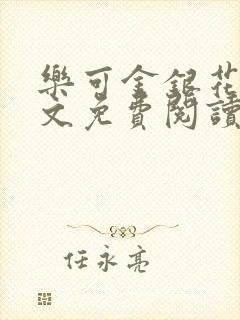 樂可金銀花
文免費閱讀
任永亮